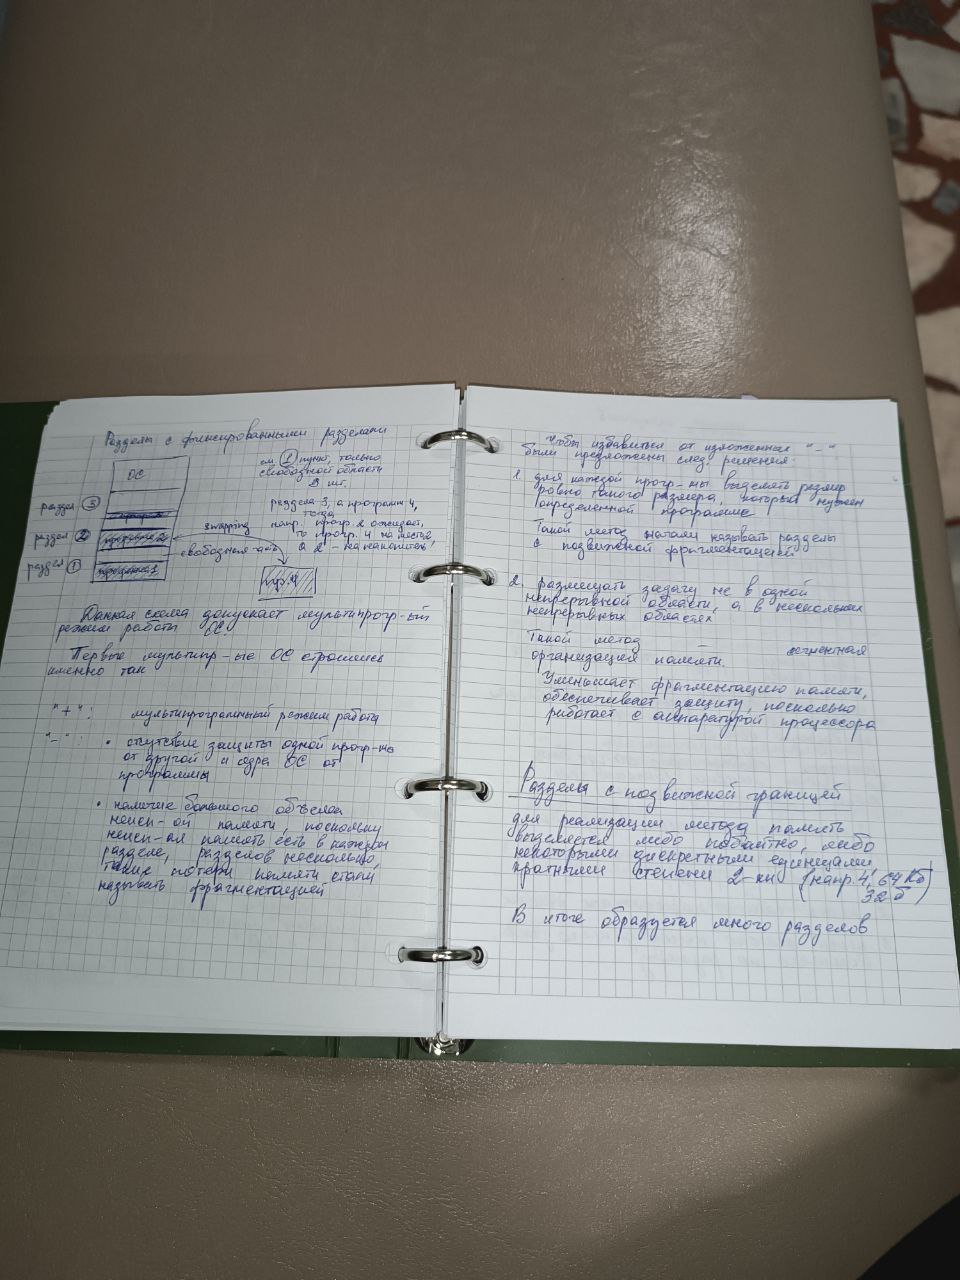 Разделы с фиксированными разделами
ОС
см. 1 пункт, только
свободной области
3 шт.
раздел 3
раздела 3, а программ 4,
тогда
напр. прогр. 2 ожидает,
то прогр. 4 на место,
а 2 - на накопитель
swapping
раздел 2
программа 2
свободная часть
раздел 1
программа 1
пр. 4
Данная схема допускает мультипрогр-ый
режим работы ОС
Первые мультипр-ые ОС строились
именно так
"+" : мультипрограмный режим работы
"-" : • отсутствие защиты одной прогр-мы
от другой и ядра ОС от
программы
• наличие большого объёма
неисп-ой памяти, поскольку
неисп-ая память есть в каждом
разделе, разделов несколько,
такие потери памяти стали
называть фрагментацией
Чтобы избавиться от изложенных "-"
были предложены след. решения:
1. для каждой прогр-мы выделять размер
ровно такого размера, который нужен
определенной программе
Такой метод начали называть разделы
с подвижной фрагментацией
2. размещать задачу не в одной
непрерывной области, а в нескольких
непрерывных областях
Такой метод - сегментная
организация памяти.
Уменьшает фрагментацию памяти,
обеспечивает защиту, поскольку
работает с аппаратурой процессора
Разделы с подвижной границей
для реализации метода память
выделяется либо побайтно, либо
некоторыми дискретными единицами,
кратными степени 2-ки (напр. 4, 64 Кб
32 б)
В итоге образуется много разделов